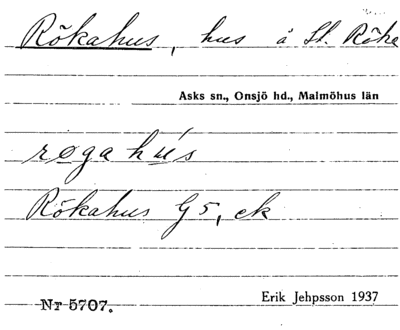 Rökahus, hus å St. Röke
Asks sn., Onsjö hd., Malmöhus län
røga hús
Rökahus G5, ek
Erik Jehpsson 1937
Nr 5707.